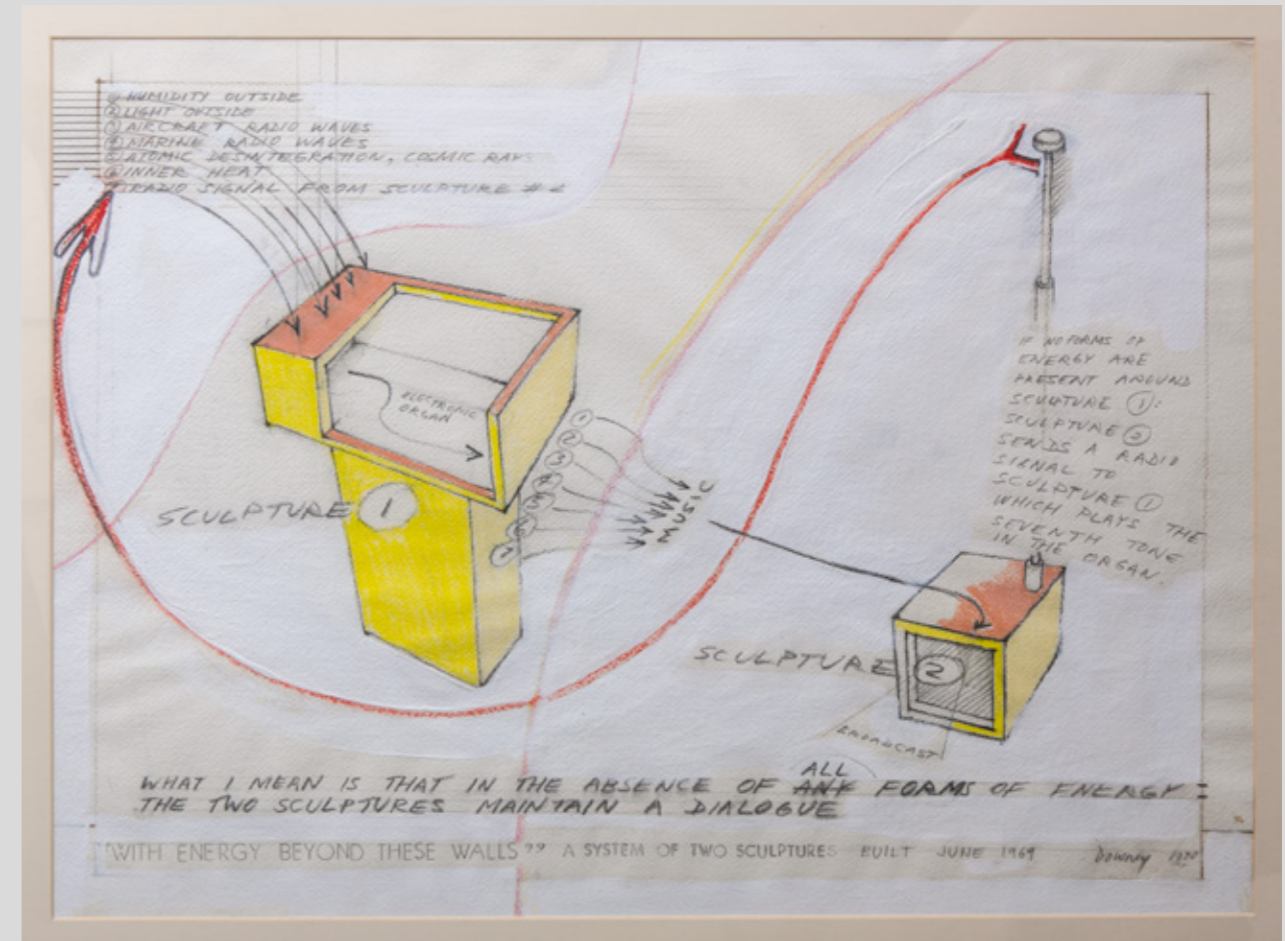 ① HUMIDITY OUTSIDE
② LIGHT OUTSIDE
③ AIRCRAFT RADIO WAVES
④ MARINE RADIO WAVES
⑤ ATOMIC DESINTEGRATION, COSMIC RAYS
⑥ INNER HEAT
⑦ RADIO SIGNAL FROM SCULPTURE # 2
ELECTRONIC
ORGAN
SCULPTURE 1
1
2
3
4
5
6
7
MUSIC
IF NO FORMS OF
ENERGY ARE
PRESENT AROUND
SCULPTURE ①:
SCULPTURE ②
SENDS A RADIO
SIGNAL TO
SCULPTURE ①
WHICH PLAYS THE
SEVENTH TONE
IN THE ORGAN.
SCULPTURE 2
BROADCAST
ALL
WHAT I MEAN IS THAT IN THE ABSENCE OF ANY FORMS OF ENERGY =
THE TWO SCULPTURES MAINTAIN A DIALOGUE
"WITH ENERGY BEYOND THESE WALLS" A SYSTEM OF TWO SCULPTURES BUILT JUNE 1969 Downey 1970